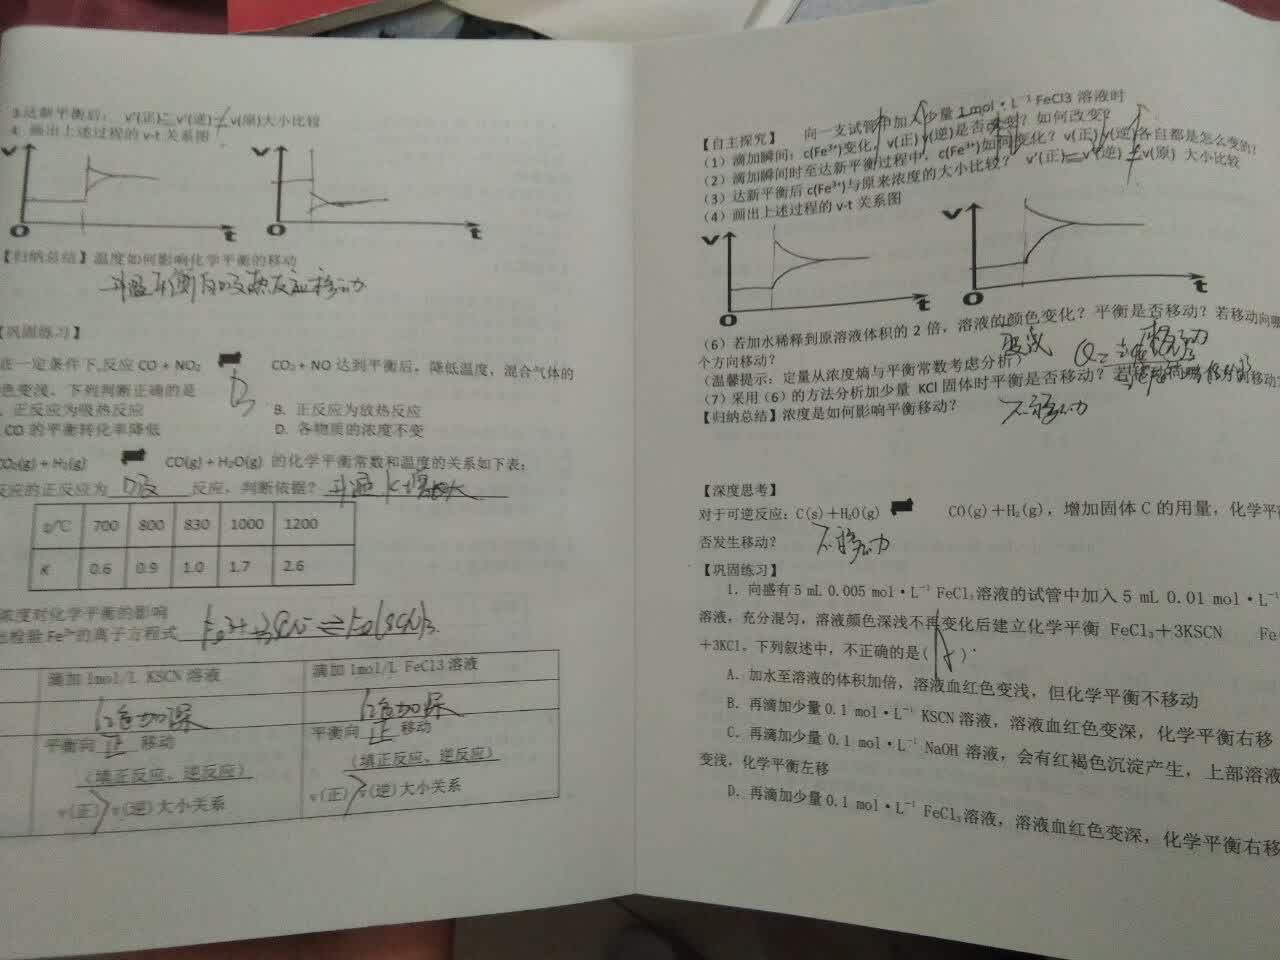 3.达新平衡后： v'(正)=v'(逆)≠v(原)大小比较
4. 画出上述过程的 v-t 关系图
v
v
0
t
0
t
【归纳总结】温度如何影响化学平衡的移动
升温平衡向吸热反应移动
【巩固练习】
在一定条件下,反应 CO + NO₂ ⇌ CO₂ + NO 达到平衡后，降低温度，混合气体的
色变浅。下列判断正确的是 B
正反应为吸热反应 B. 正反应为放热反应
CO 的平衡转化率降低 D. 各物质的浓度不变
CO₂(g) + H₂(g) ⇌ CO(g) + H₂O(g) 的化学平衡常数和温度的关系如下表:
反应的正反应为 吸 反应，判断依据？ 升温 K 增大
℃ 700 800 830 1000 1200
K 0.6 0.9 1.0 1.7 2.6
浓度对化学平衡的影响
检验 Fe³⁺的离子方程式 Fe³⁺+3SCN⁻⇌Fe(SCN)₃
滴加 1mol/L KSCN 溶液 滴加 1mol/L FeCl3 溶液
红色加深 红色加深
平衡向 正 移动 平衡向 正 移动
（填正反应、逆反应） （填正反应、逆反应）
v(正)>v(逆)大小关系 v(正)>v(逆)大小关系
【自主探究】 向一支试管中加入少量 1mol·L⁻¹ FeCl3 溶液时
（1）滴加瞬间：c(Fe³⁺)变化，v(正) v(逆)是否改变？如何改变?
（2）滴加瞬间时至达新平衡过程中，c(Fe³⁺)如何变化？v(正) v(逆)各自都是怎么变的?
（3）达新平衡后 c(Fe³⁺)与原来浓度的大小比较？ v'(正)=v'(逆)≠v(原) 大小比较
（4）画出上述过程的 v-t 关系图
v
v
0
t
0
t
（6）若加水稀释到原溶液体积的 2 倍，溶液的颜色变化？平衡是否移动？若移动向哪
个方向移动？ 变浅 移动
（温馨提示：定量从浓度熵与平衡常数考虑分析）
（7）采用（6）的方法分析加少量 KCl 固体时平衡是否移动？
【归纳总结】浓度是如何影响平衡移动？ 不移动
【深度思考】
对于可逆反应：C(s)＋H₂O(g) ⇌ CO(g)＋H₂(g)，增加固体 C 的用量，化学平
否发生移动？ 不移动
【巩固练习】
1. 向盛有 5 mL 0.005 mol·L⁻¹ FeCl₃溶液的试管中加入 5 mL 0.01 mol·L⁻¹
溶液，充分混匀，溶液颜色深浅不再变化后建立化学平衡 FeCl₃＋3KSCN Fe
＋3KCl。下列叙述中，不正确的是( A )
A. 加水至溶液的体积加倍，溶液血红色变浅，但化学平衡不移动
B. 再滴加少量 0.1 mol·L⁻¹ KSCN 溶液，溶液血红色变深，化学平衡右移
C. 再滴加少量 0.1 mol·L⁻¹ NaOH 溶液，会有红褐色沉淀产生，上部溶液
变浅，化学平衡左移
D. 再滴加少量 0.1 mol·L⁻¹ FeCl₃溶液，溶液血红色变深，化学平衡右移